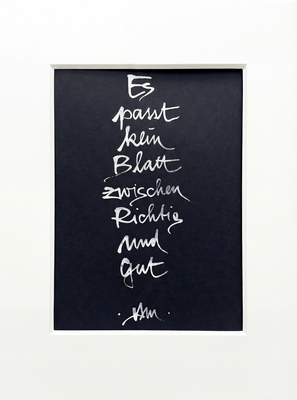 Es
passt
kein
Blatt
zwischen
Richtig
und
gut